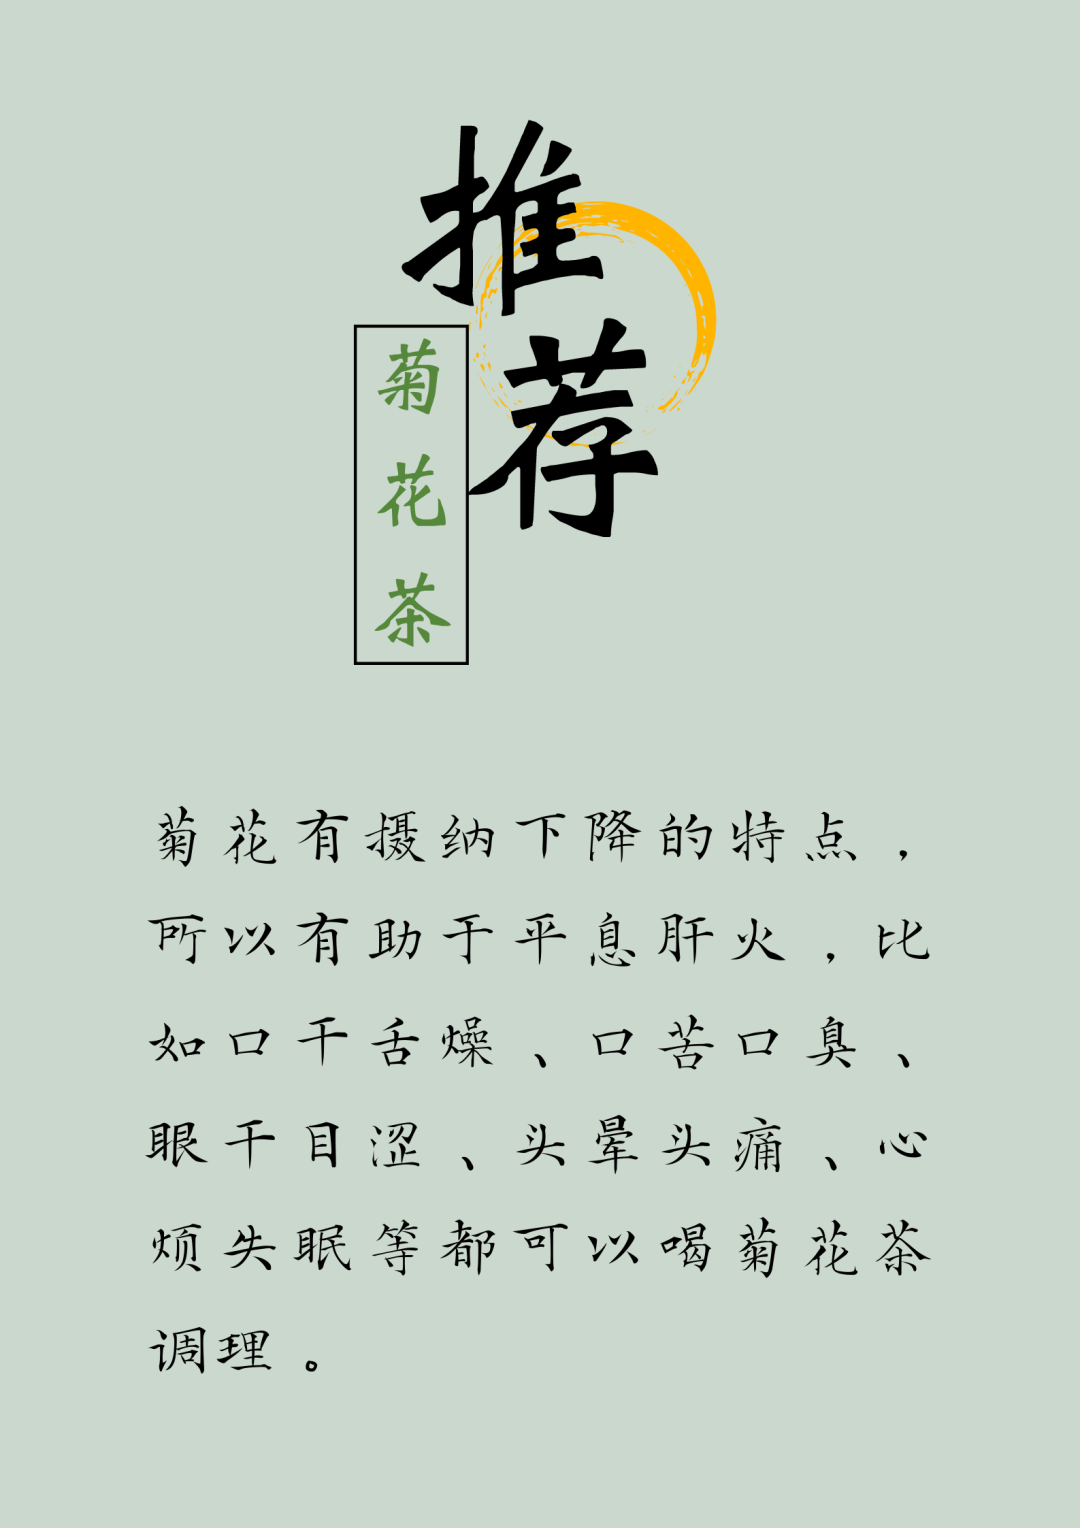 推荐
菊花茶
菊花有摄纳下降的特点，
所以有助于平息肝火，比
如口干舌燥、口苦口臭、
眼干目涩、头晕头痛、心
烦失眠等都可以喝菊花茶
调理。